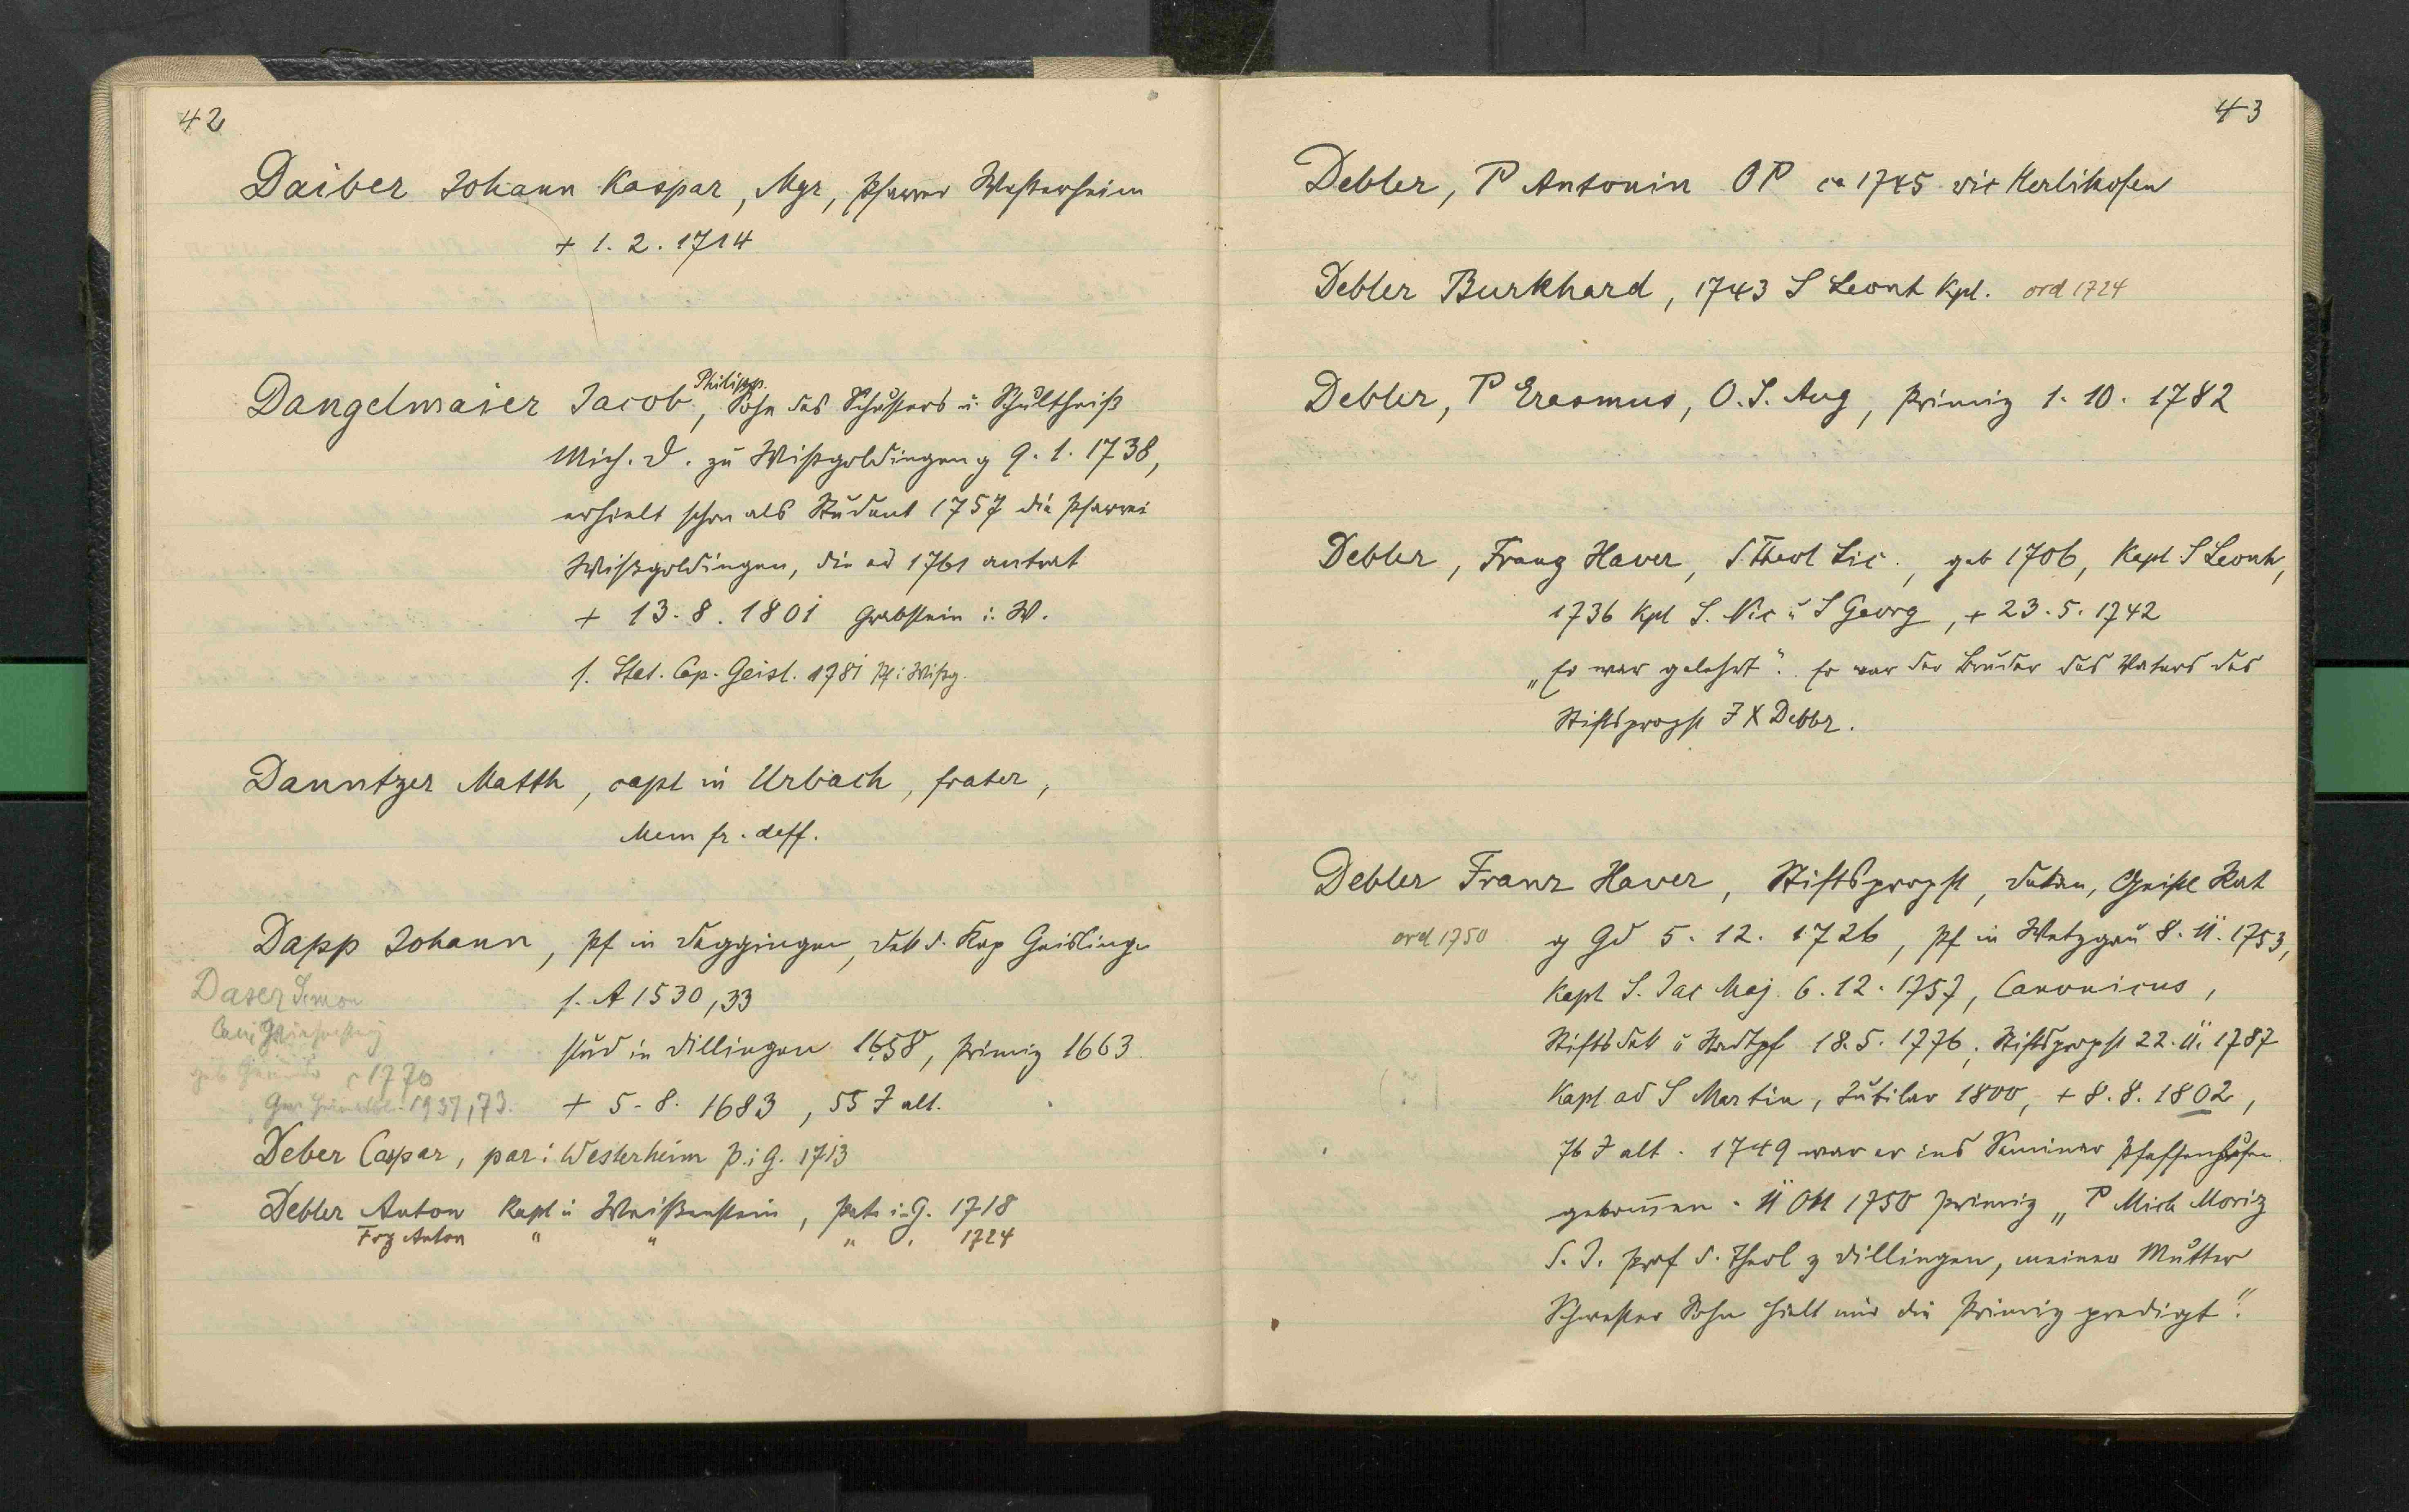 42
Daiber Johann Kaspar, Mgr, Pfarrer Westerheim
+ 1. 2. 1714
Dangelmaier Jacob Philipp, Sohn des Schusters u. Schultheiß
Mich. D. zu Wißgoldingen g 9. 1. 1738,
erhielt schon als Student 1757 die Pfarrei
Wißgoldingen, die er 1761 antrat
+ 13. 8. 1801 Grabstein i. W.
s. Stat. Cap. Geisl. 1781 Pf i Wißg.
Danntzer Matth, capl in Urbach, frater,
Mem fr. deff.
Dapp Johann, Pf in Deggingen, Dek d. Kap Geislingen
s. A 1530, 33
stud in Dillingen 1658, Primiz 1663
+ 5. 8. 1683, 55 J alt.
Daser Simon
1770
1937, 73.
Deber Caspar, par i Westerheim P. i G. 1713
Debler Anton Kapl i Weißenstein, Pate i. G. 1718
Frz Anton " " " " 1724
43
Debler, P Antonin OP ca 1745 vic Herlikofen
Debler Burkhard, 1743 S Leonh Kpl. ord 1724
Debler, P Erasmus, O. S. Aug, Primiz 1. 10. 1782
Debler, Franz Xaver, S. Theol Lic., geb 1706, Kapl S Leonh,
1736 Kpl S. Nic u S Georg, + 23. 5. 1742
„Er war gelehrt". Er war der Bruder des Vaters des
Stiftspropst F X Debler.
Debler Franz Xaver, Stiftspropst, Dekan, Geistl Rat
ord 1750 g Gd 5. 12. 1726, Pf in Wetzgau 8. 11. 1753,
Kapl S. Jac Maj. 6. 12. 1757, Canonicus,
Stiftsdek u Stadtpf 18. 5. 1776, Stiftspropst 22. 11. 1787
Kapl ad S Martin, Jubilar 1800, + 8. 8. 1802,
76 J alt. 1749 war er ins Seminar Pfaffenhausen
gekommen. 11 Okt 1750 Primiz „P Mich Moriz
S. J. Prof d. Theol z Dillingen, meiner Mutter
Schwester Sohn hielt mir die Primizpredigt".